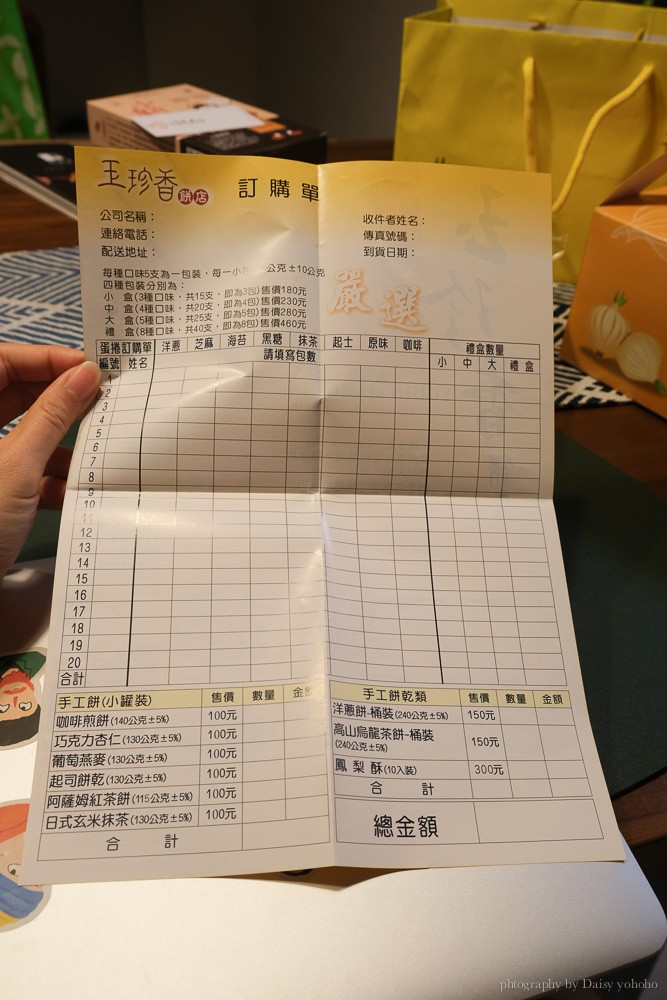 玉珍香餅店 訂購單
公司名稱：
連絡電話：
配送地址：
收件者姓名：
傳真號碼：
到貨日期：
每種口味5支為一包裝，每一小包 公克±10公克
四種包裝分別為：
小 盒(3種口味，共15支，即為3包)售價180元
中 盒(4種口味，共20支，即為4包)售價230元
大 盒(5種口味，共25支，即為5包)售價280元
禮 盒(8種口味，共40支，即為8包)售價460元
嚴選
蛋捲訂購單 洋蔥 芝麻 海苔 黑糖 抹茶 起士 原味 咖啡 禮盒數量
編號 姓名 請填寫包數 小 中 大 禮盒
1
2
3
4
5
6
7
8
9
10
11
12
13
14
15
16
17
18
19
20
合計
手工餅(小罐裝) 售價 數量 金額
咖啡煎餅(140公克±5%) 100元
巧克力杏仁(130公克±5%) 100元
葡萄燕麥(130公克±5%) 100元
起司餅乾(130公克±5%) 100元
阿薩姆紅茶餅(115公克±5%) 100元
日式玄米抹茶(130公克±5%) 100元
合 計
手工餅乾類 售價 數量 金額
洋蔥餅-桶裝(240公克±5%) 150元
高山烏龍茶餅-桶裝
(240公克±5%) 150元
鳳梨酥(10入裝) 300元
合 計
總金額
phtography by Daisy yohoho